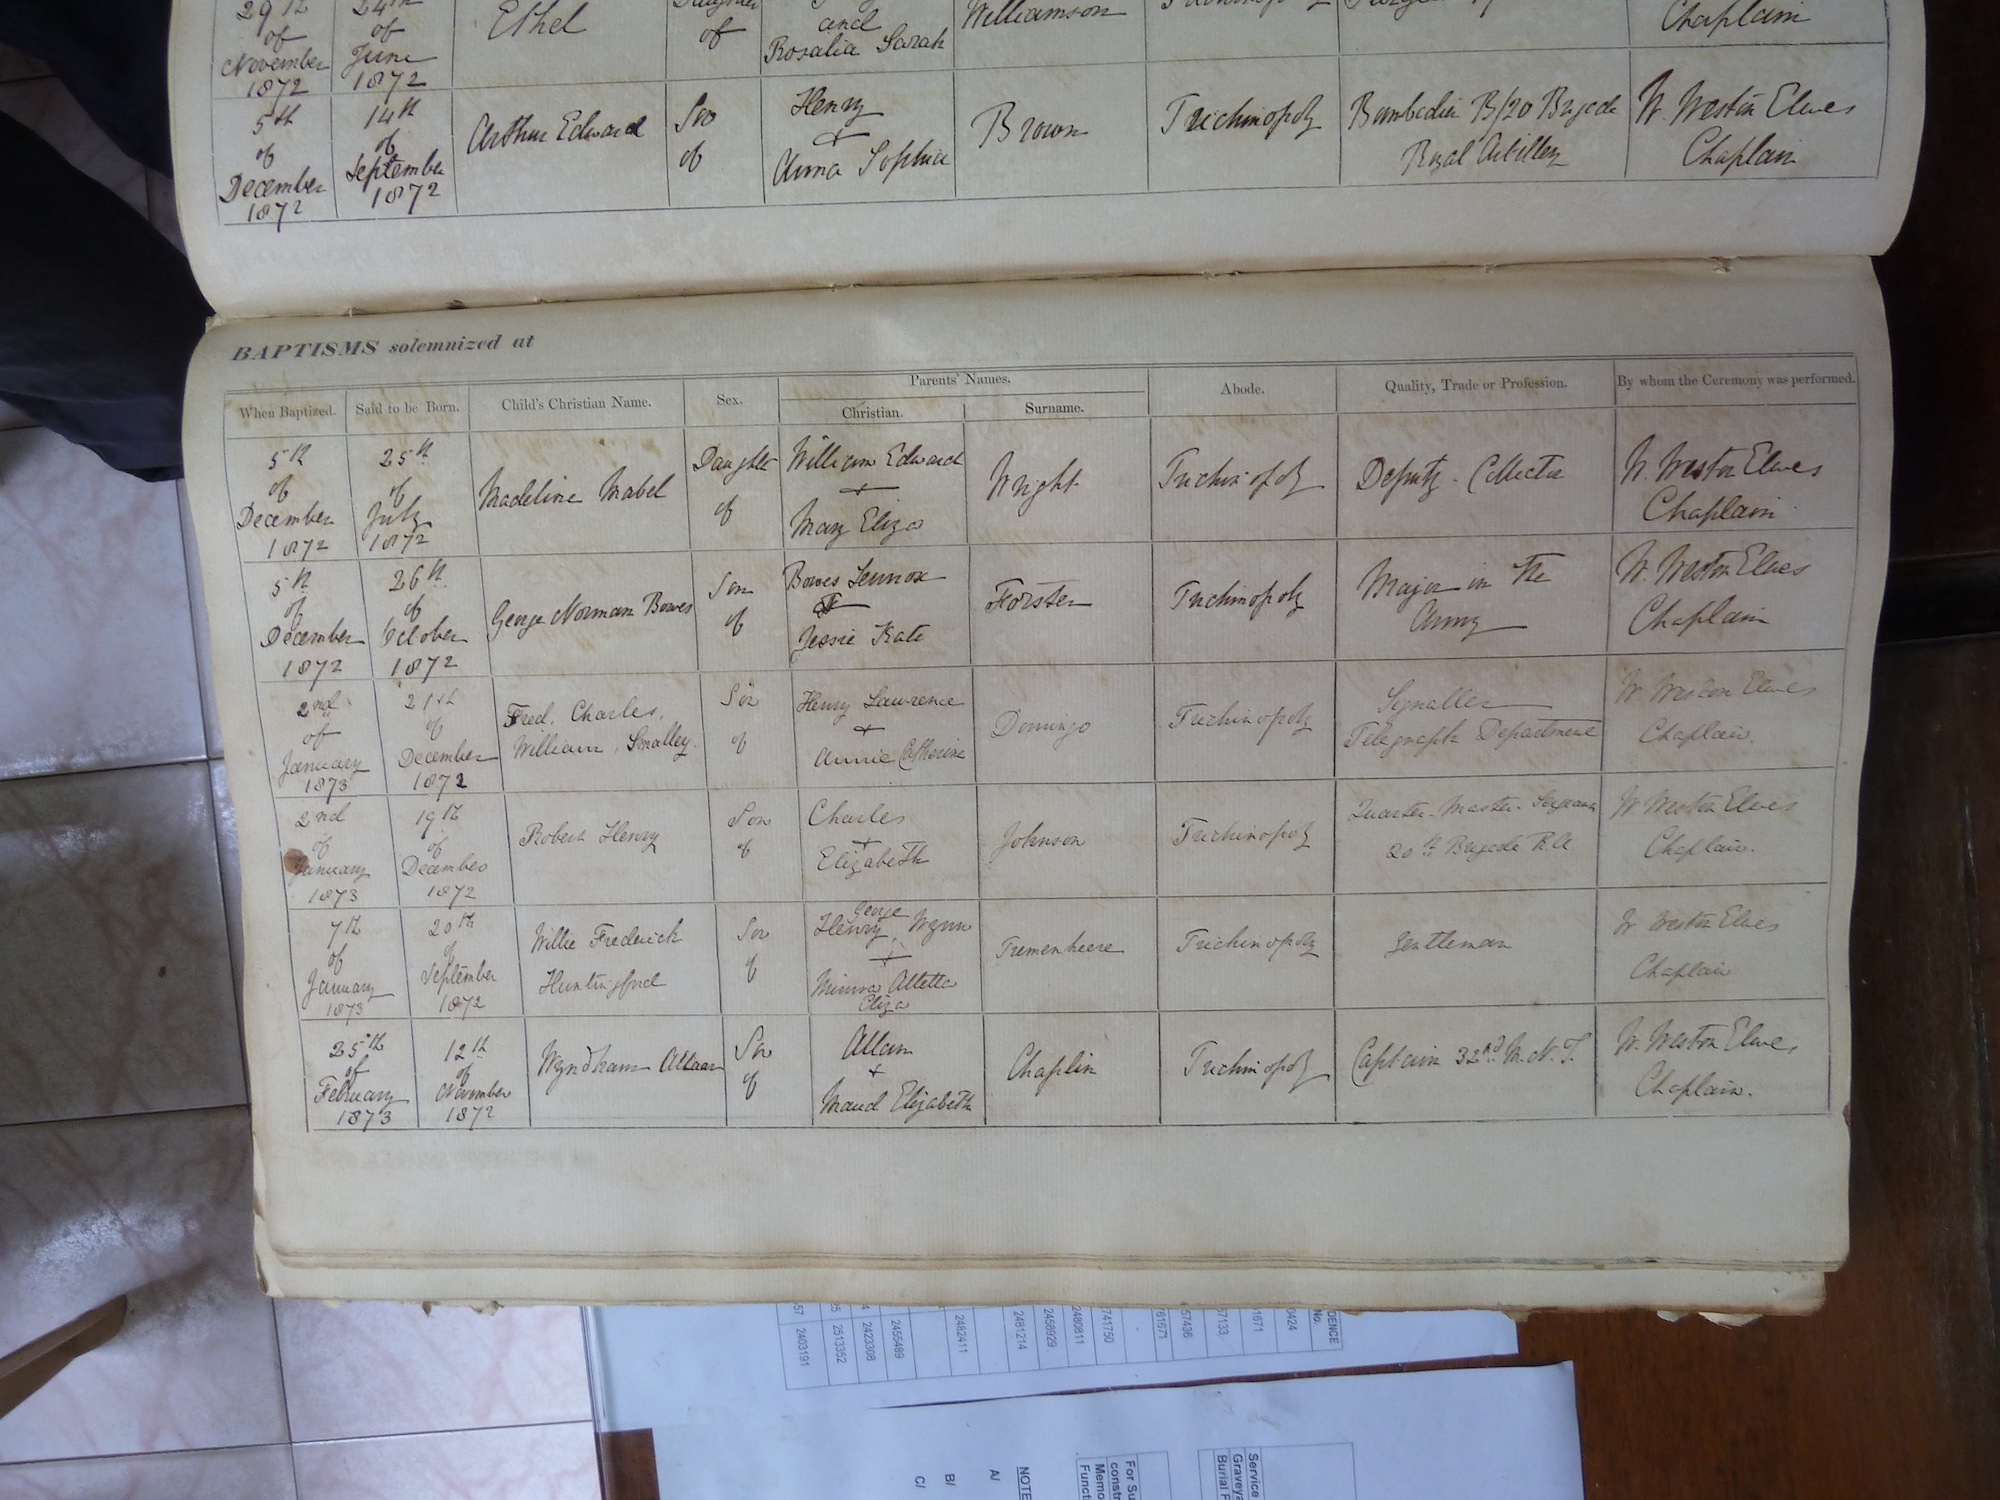 29th 24th
of of Ethel of and Williamson Chaplain
November June Rosalia Sarah
1872 1872
5th 14th Son Henry
of of Arthur Edward + Brown Trichinopoly B/20 Brigade W. Weston Elwes
December September of Anna Sophia Royal Artillery Chaplain
1872 1872
BAPTISMS solemnized at
When Baptized. Said to be Born. Child's Christian Name. Sex. Parents' Names. Abode. Quality, Trade or Profession. By whom the Ceremony was performed.
Christian. Surname.
5th 25th Daughter William Edward
of of Madeline Mabel + Wright Trichinopoly Deputy - Collector W. Weston Elwes
December July of Mary Eliza Chaplain
1872 1872
5th 26th Son Bowes Lennox Major in the W. Weston Elwes
of of George Norman Bowes + Forster Trichinopoly Army Chaplain
December October of Jessie Kate
1872 1872
2nd 21st Fred. Charles, Son Henry Lawrence Signaller W Weston Elwes
of of William, Smalley. + Domingo Trichinopoly Telegraph Department Chaplain.
January December of Annie Catherine
1873 1872
2nd 19th Son Charles Quarter-Master-Sergeant W Weston Elwes
of of Robert Henry + Johnson Trichinopoly 20th Brigade R.A Chaplain.
January December of Elizabeth
1873 1872
7th 20th George
of of Willie Frederick Son Henry Wynn Tremenheere Trichinopoly Gentleman W. Weston Elwes
January September Huntingford of + Chaplain
1873 1872 Minna Alletta
Eliza
25th 12th Son Allan
of of Wyndham Allan + Chaplin Trichinopoly Captain 32nd M.N.I. W. Weston Elwes
February November of Maud Elizabeth Chaplain.
1873 1872
DENCE
No.
0424
1671
57133
57436
761671
741750
2480811
2458929
2481214
2482411
2455489
2423308
2513352
2403191
57
Service
Graveya
Burial F
For Su
constr
Memo
Functi
NOTE
A/
B/
C/